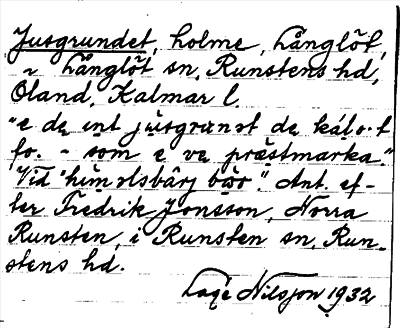 Jusgrundet, holme, Långlöt,
~ Långlöt sn, Runstens hd,
Öland, Kalmar l.
"e da int jusgrunət da kálo·t
fo. - som e va præstmarka."
Vid "himəlsbärj bor". Ant. ef-
ter Fredrik Jonsson, Norra
Runsten, i Runsten sn, Run-
stens hd.
Lage Nilsson 1932